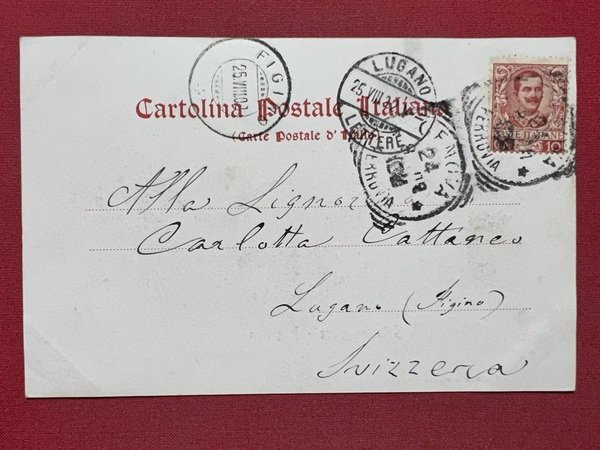 FIGINO
25.VIII.0
LUGANO
25.VIII.
LETTERE
GENOVA
24
FERROVIA
FERROVIA
POSTE ITALIANE
10
Cartolina Postale Italiana
(Carte Postale d'Italie)
Alla Signorina
Carlotta Cattaneo
Lugano (Figino)
Svizzera